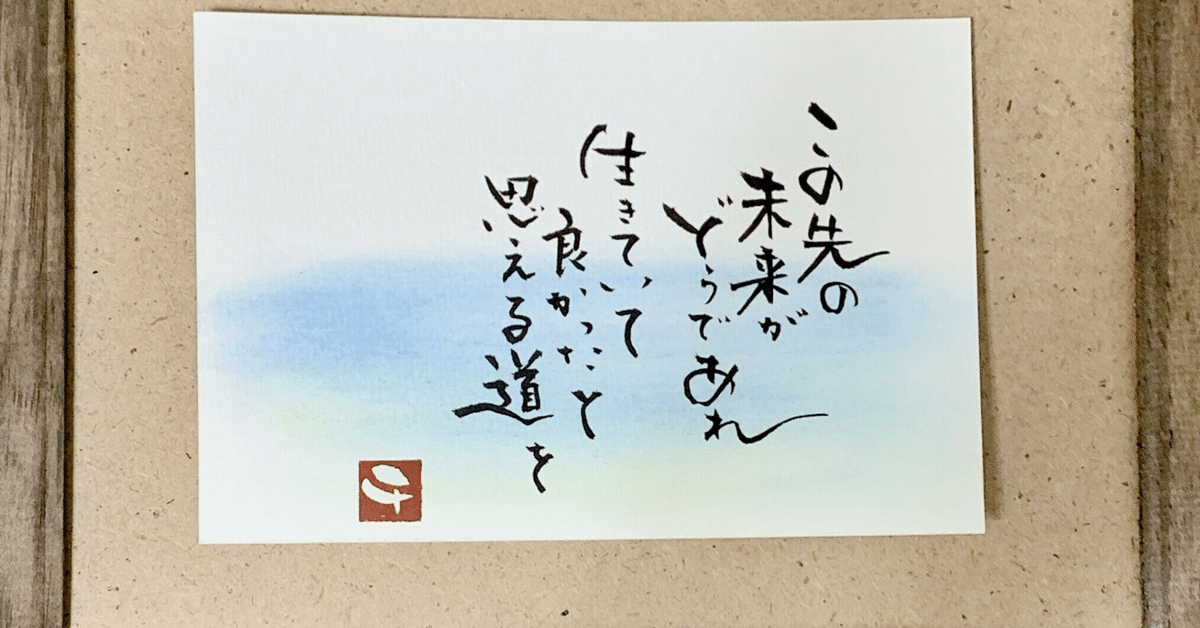 この先の
未来が
どうであれ
生きていて
良かったと
思える道を